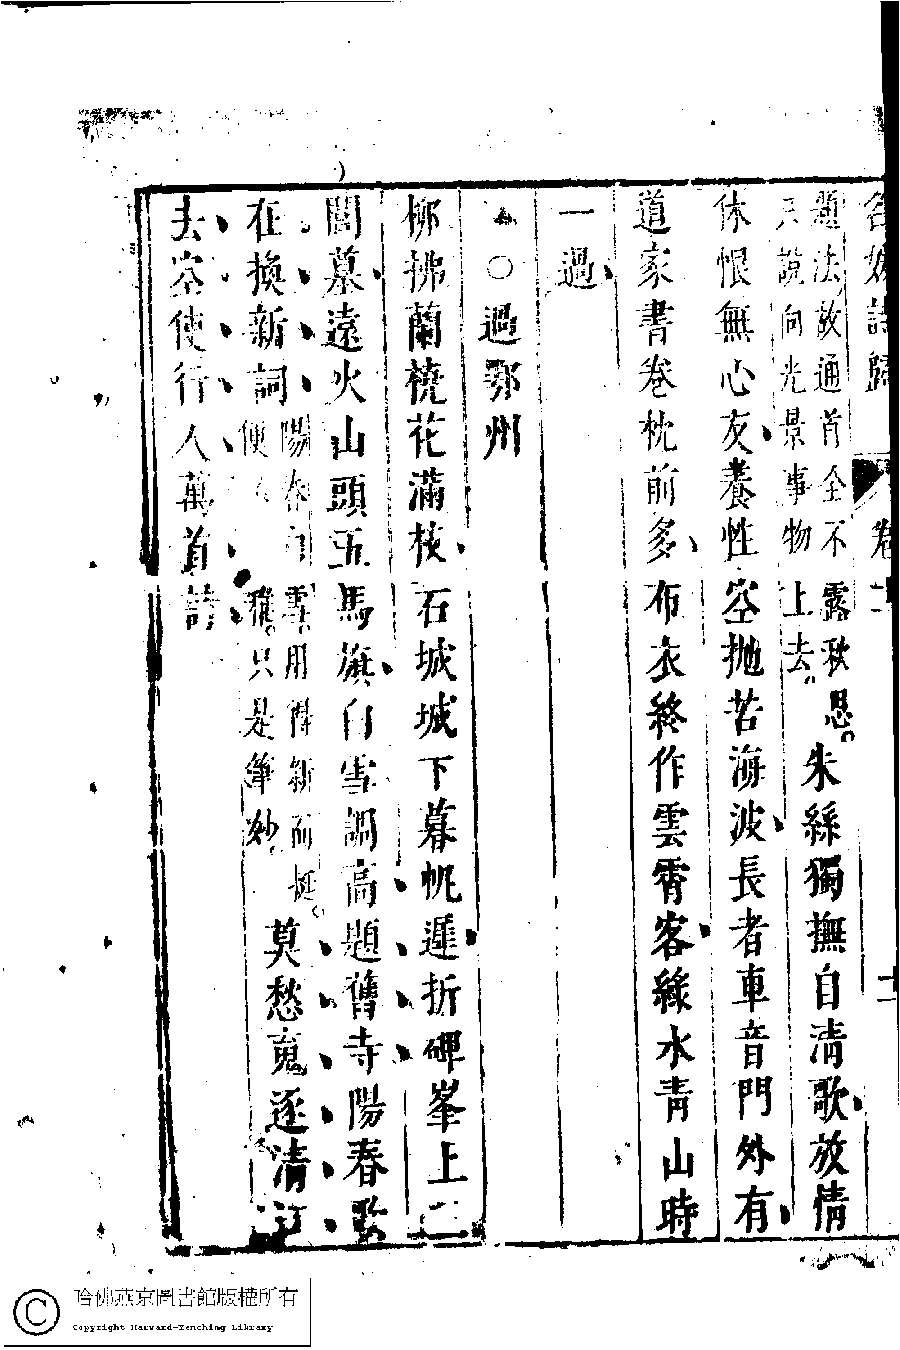 名媛詩歸　卷十一　十
題法故通首全不露秋思。
只說向光景事物上去。
朱絲獨撫自清歌放情
休恨無心友養性空抛苦海波長者車音門外有
道家書卷枕前多布衣終作雲霄客綠水青山時
一過
○過鄂州
柳拂蘭橈花滿枝石城城下暮帆遲折碑峯上
閣墓遠火山頭五馬旗白雪調高題舊寺陽春歌
在換新詞
陽春白雪。用得新而挺。
便　雅。只是筆妙。
莫愁䰟逐清江
去空使行人萬首詩
哈佛燕京圖書館版權所有
Copyright Harvard-Yenching Library